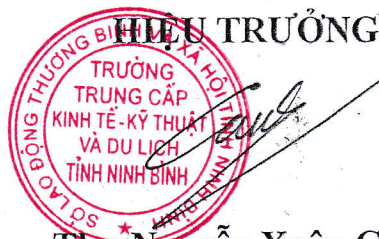 HIỆU TRƯỞNG
SỞ LAO ĐỘNG THƯƠNG BINH VÀ XÃ HỘI TỈNH NINH BÌNH
TRƯỜNG
TRUNG CẤP
KINH TẾ-KỸ THUẬT
VÀ DU LỊCH
TỈNH NINH BÌNH
Nguyễn Xuân